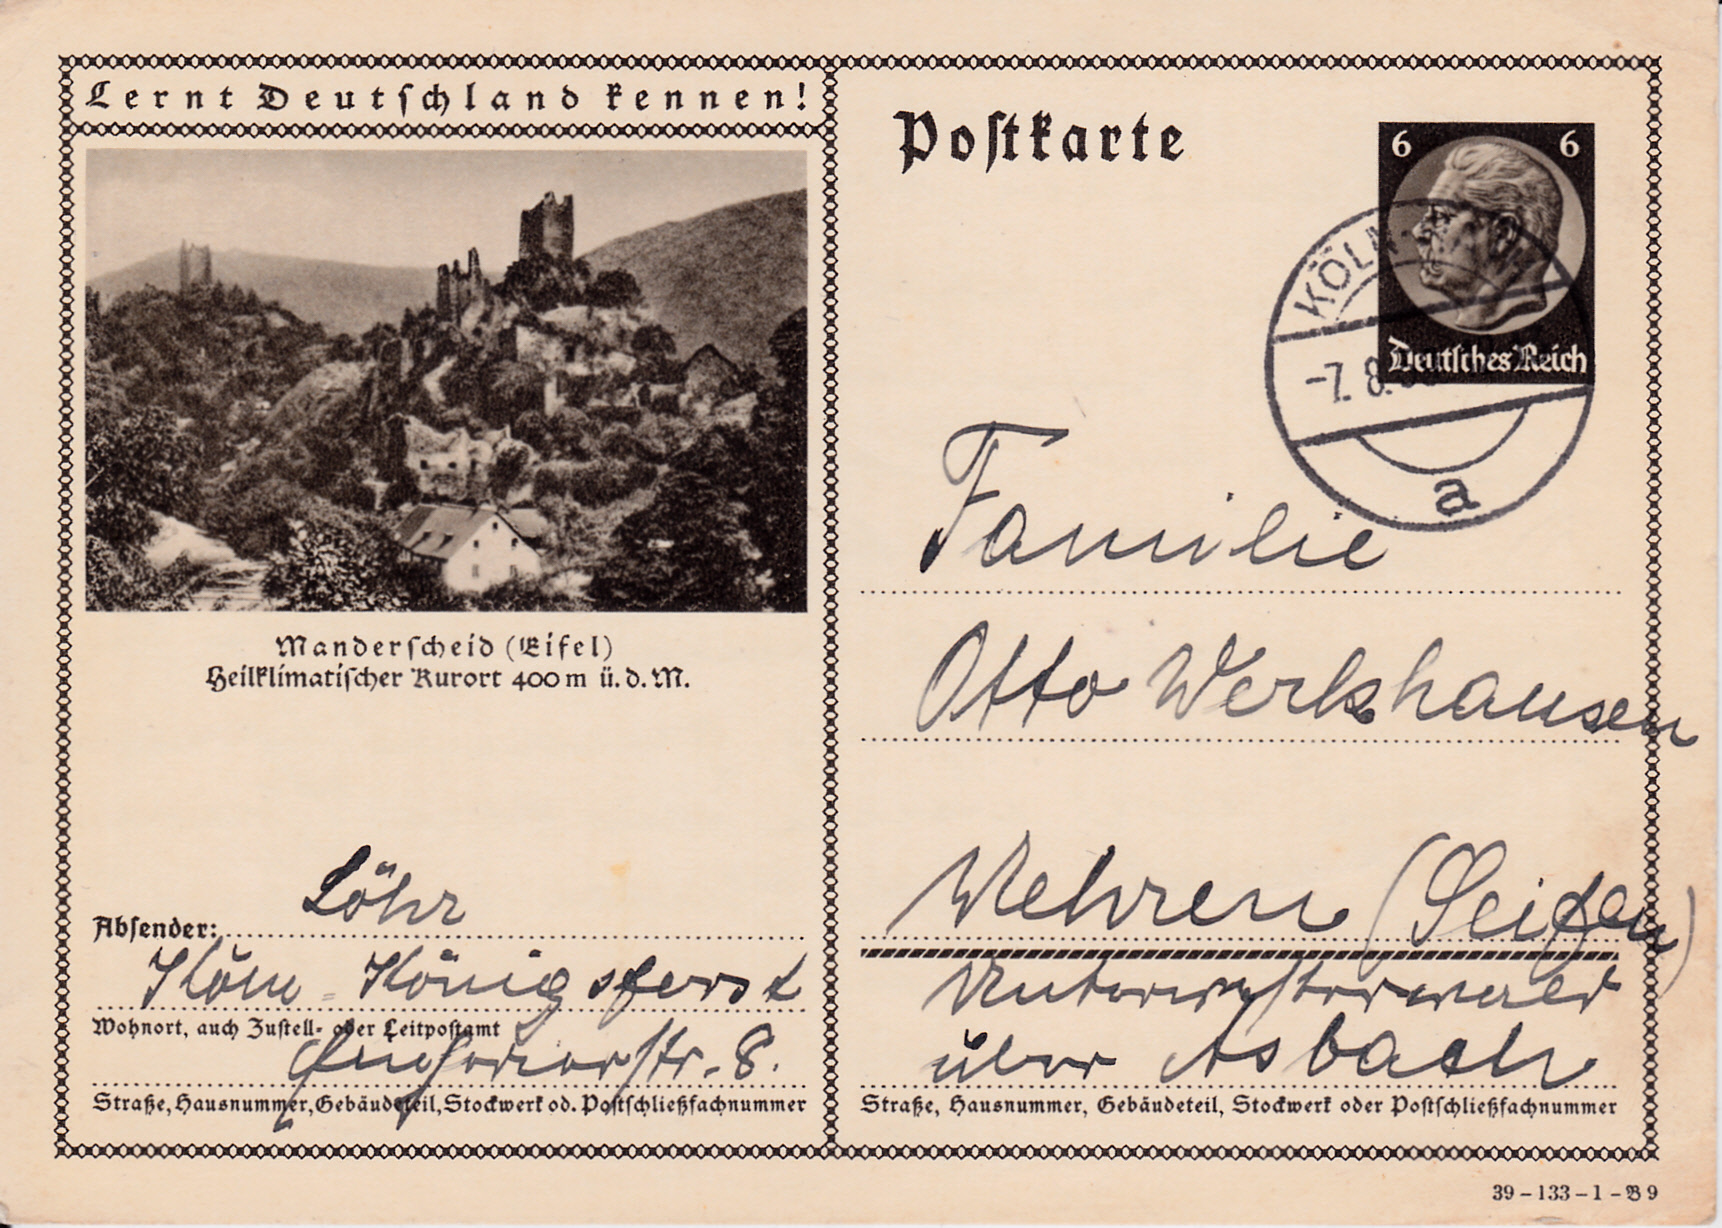 Lernt Deutschland kennen!
Manderscheid (Eifel)
Heilklimatischer Kurort 400 m ü. d. M.
Löhr
Absender:
Köln - Königsforst
Wohnort, auch Zustell- oder Leitpostamt
str. 8.
Straße, Hausnummer, Gebäudeteil, Stockwerk od. Postschließfachnummer
Postkarte
6 6
Deutsches Reich
KÖLN
-7. 8.
a
Familie
Otto Werkshausen
Wehren (Seifen)
Unterwesterwald
über Asbach
Straße, Hausnummer, Gebäudeteil, Stockwerk oder Postschließfachnummer
39 - 133 - 1 - B 9